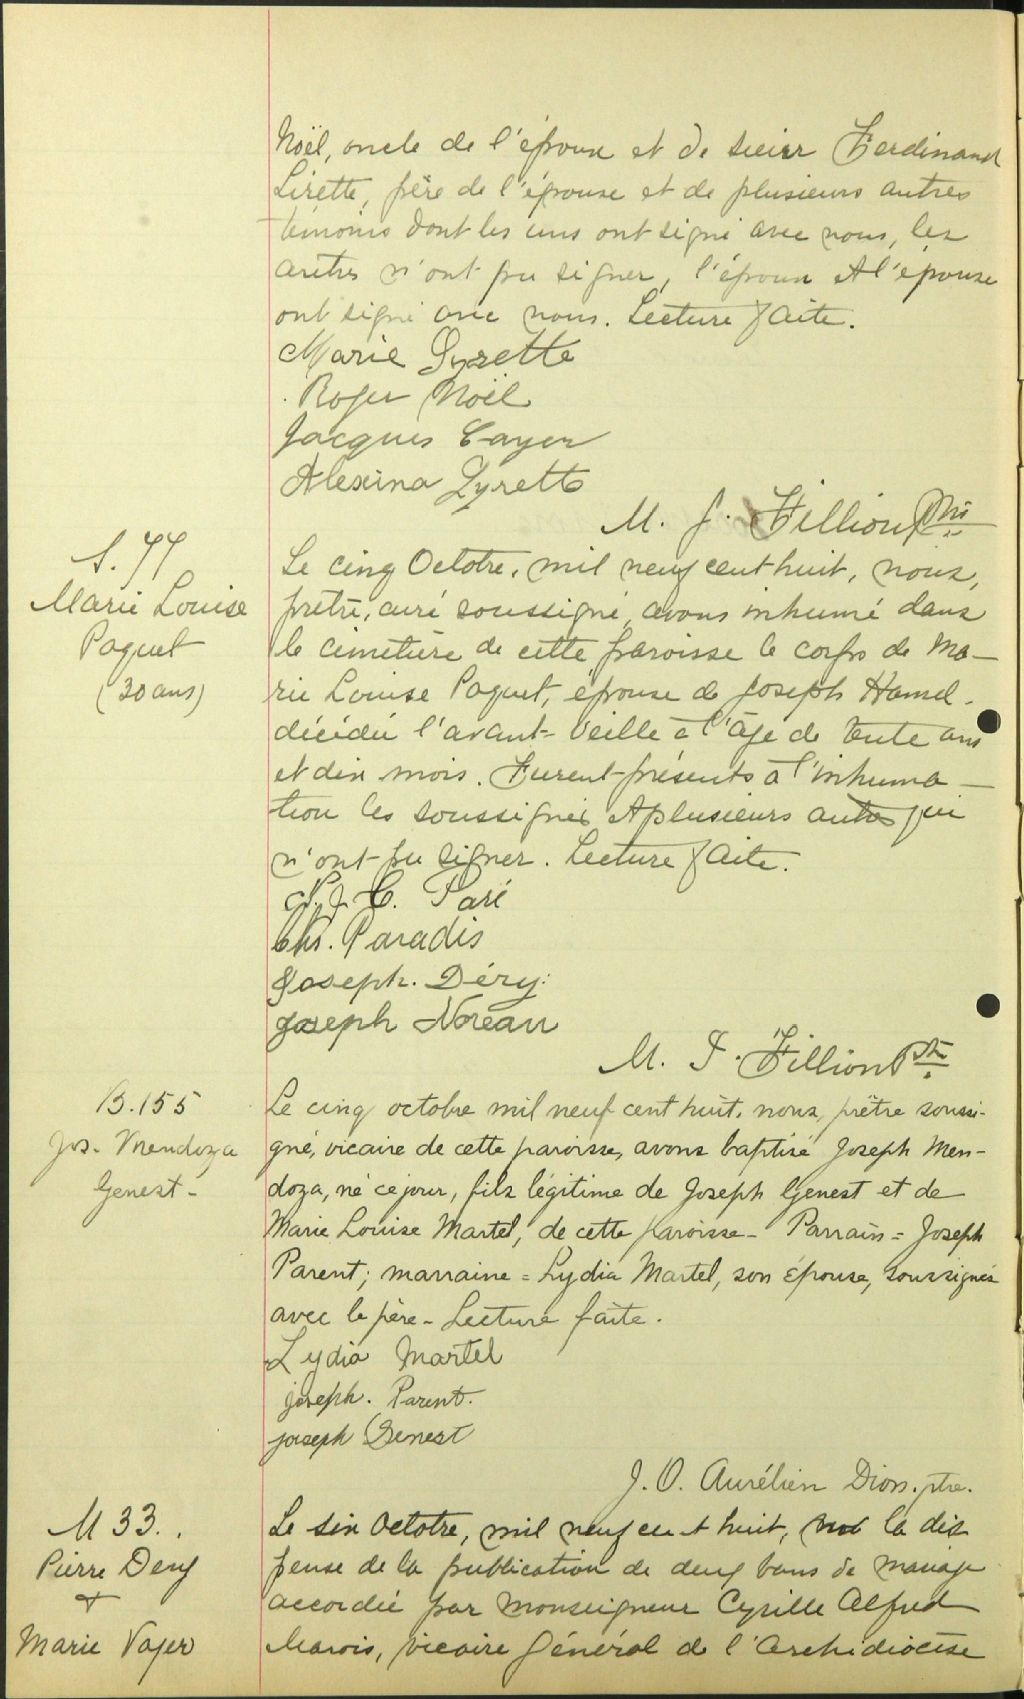 Noël, oncle de l'époux et de sieur Ferdinand
Lirette, père de l'épouse et de plusieurs autres
témoins dont les uns ont signé avec nous, les
autres n'ont pu signer, l'époux et l'épouse
ont signé avec nous. Lecture faite.
Marie Lyrette
Roger Noël
Jacques Cayer
Alexina Lyrette
M. J. Fillion Ptre
S. 77
Marie Louise
Paquet
(30 ans)
Le cinq Octobre, mil neuf cent huit, nous,
prêtre, curé soussigné, avons inhumé dans
le cimetière de cette paroisse le corps de Ma-
rie Louise Paquet, épouse de Joseph Hamel
décédée l'avant-veille à l'âge de trente ans
et dix mois. Furent présents à l'inhuma-
tion les soussignés et plusieurs autres qui
n'ont pu signer. Lecture faite.
J. C. Paré
Chs. Paradis
Joseph. Déry
Joseph Noreau
M. J. Fillion Ptre
B. 155
Jos. Mendoza
Genest-
Le cinq octobre mil neuf cent huit, nous, prêtre soussi-
gné, vicaire de cette paroisse, avons baptisé Joseph Men-
doza, né ce jour, fils légitime de Joseph Genest et de
Marie Louise Martel, de cette paroisse- Parrain = Joseph
Parent; marraine = Lydia Martel, son épouse, soussignés
avec le père- Lecture faite.
Lydia Martel
joseph. Parent.
joseph Genest
J. O. Aurélien Dion. ptre.
M 33.
Pierre Dery
+
Marie Voyer
Le six Octobre, mil neuf cent huit, vu la dis
pense de la publication de deux bans de mariage
accordée par Monseigneur Cyrille Alfred
Marois, vicaire Général de l'Archidiocèse